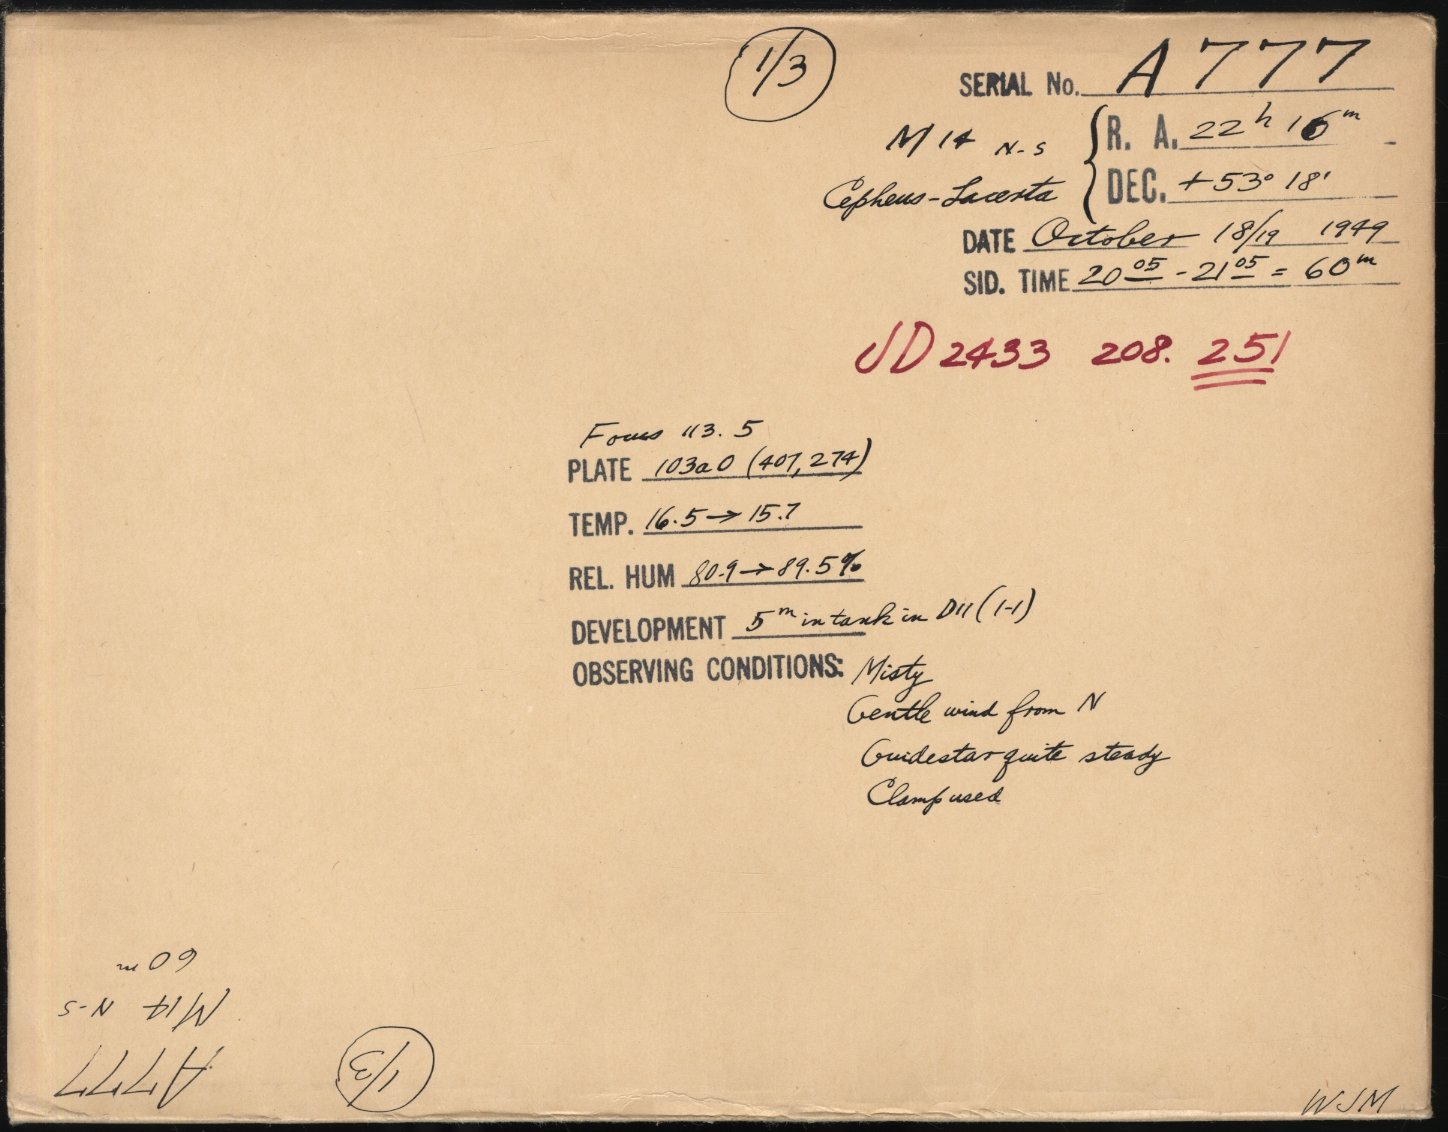 1/3
SERIAL No. A 777
M 14 N-S
R. A. 22h 16m
Cepheus-Lacerta
DEC. +53° 18'
DATE October 18/19 1949
SID. TIME 20 05 - 21 05 = 60m
JD 2433 208. 251
Focus 113. 5
PLATE 103a0 (407, 274)
TEMP. 16.5 → 15.7
REL. HUM 80.9 → 89.5%
DEVELOPMENT 5m in tank in D11 (1-1)
OBSERVING CONDITIONS: Misty
Gentle wind from N
Guidestar quite steady
Clamp used
60m
M14 N-S
A777
1/3
WJM